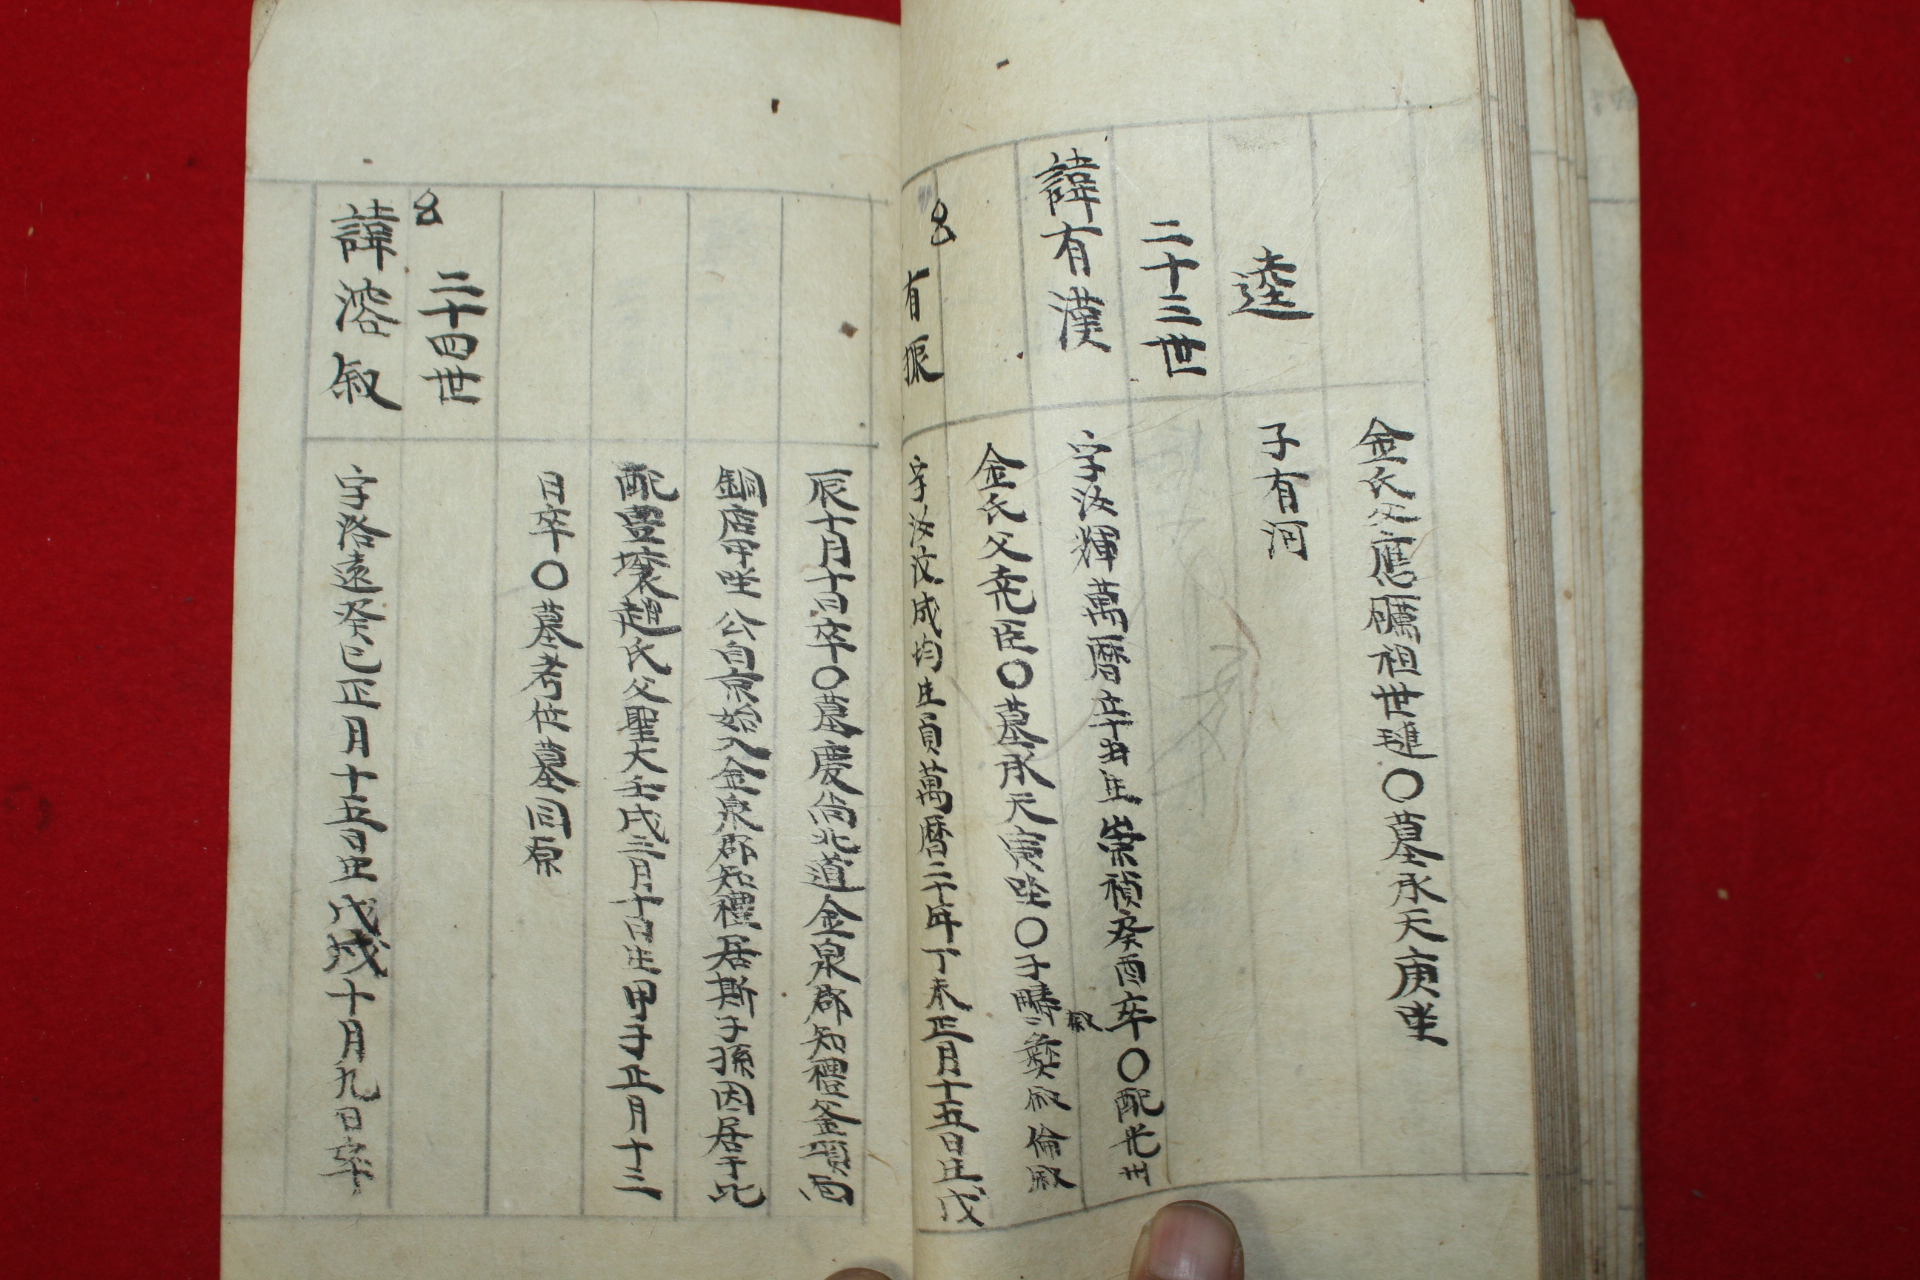 金氏父應礪祖世璡〇墓承天庚坐
逵
子有河
二十三世
諱有漢
字汝輝萬曆辛丑生崇禎癸酉卒〇配光州
金氏父克臣〇墓承天寅坐〇子疇叙彛叙倫叙
有振
字汝汶成均生員萬曆三十年丁未正月十五日生戊
辰十月十日卒〇墓慶尙北道金泉郡知禮釜項面
銅店甲坐 公自京始入金泉郡知禮居斯子孫因居于此
配豊壤趙氏父聖大壬戌三月十日生甲子正月十三
日卒〇墓考位墓同原
二十四世
諱溶叙
字洛遠癸巳正月十五日生戊戌十月九日卒